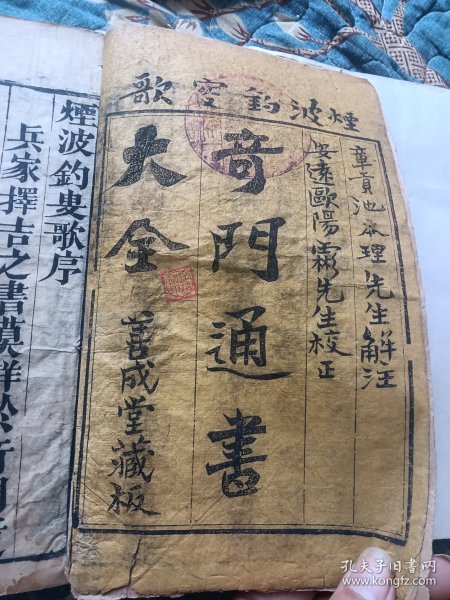 煙波釣叟歌
章貢池本理先生解注
安遠歐陽 先生校正
奇門通書
大全
善成堂藏板
煙波釣叟歌序
兵家擇吉之書莫詳於奇門
孔夫子旧书网
www.kongfz.com